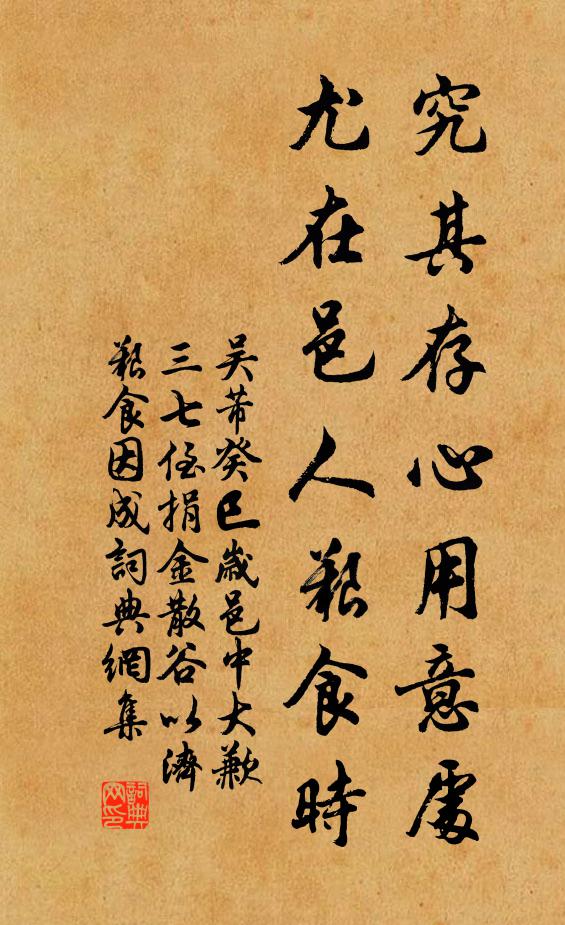 究其存心用意處
尤在邑人艱食時
吳芾癸巳歲邑中大歉
三七侄捐金散谷以濟
艱食因成詞典網集
詞典网印